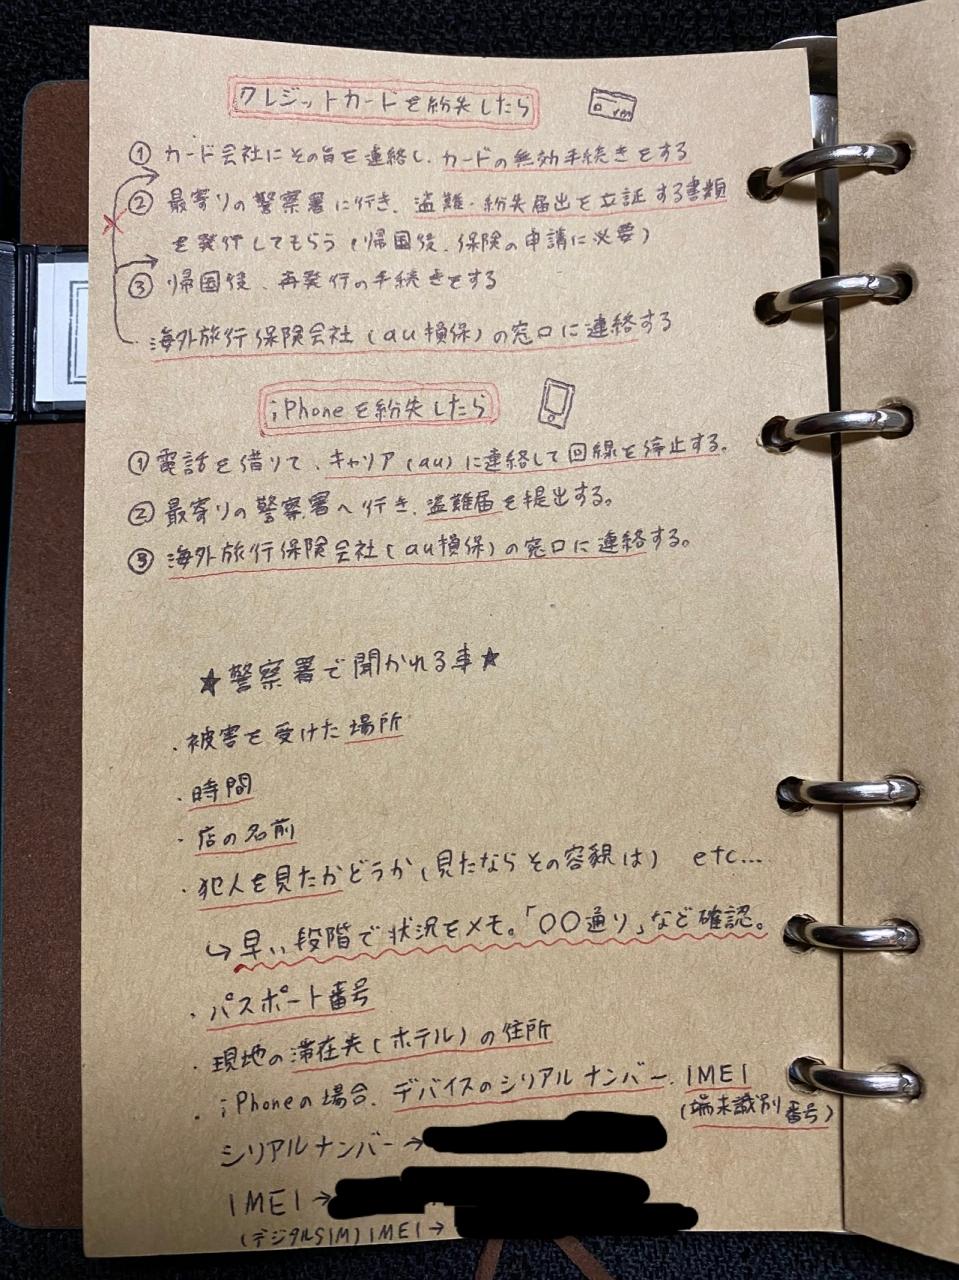 クレジットカードを紛失したら
① カード会社にその旨を連絡し、カードの無効手続きをする
② 最寄りの警察署に行き、盗難・紛失届出を立証する書類
を発行してもらう(帰国後、保険の申請に必要)
③ 帰国後、再発行の手続きをする
海外旅行保険会社(au損保)の窓口に連絡する
iPhoneを紛失したら
① 電話を借りて、キャリア(au)に連絡して回線を停止する。
② 最寄りの警察署へ行き、盗難届を提出する。
③ 海外旅行保険会社(au損保)の窓口に連絡する。
★警察署で聞かれる事★
・被害を受けた場所
・時間
・店の名前
・犯人を見たかどうか(見たならその容貌は) etc...
↳早い段階で状況をメモ。「〇〇通り」など確認。
・パスポート番号
・現地の滞在先(ホテル)の住所
・iPhoneの場合、デバイスのシリアルナンバー、IMEI
(端末識別番号)
シリアルナンバー→
IMEI→
(デジタルSIM)IMEI→